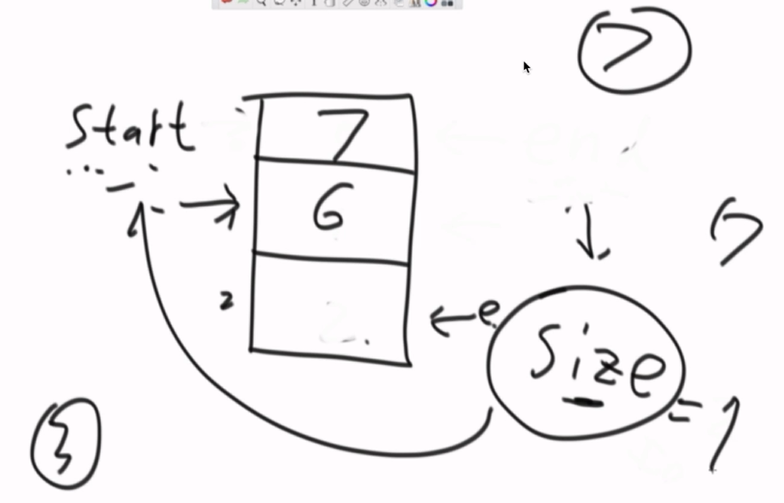 7
Start
7
1
6
7
2
e
Size
= 1
3